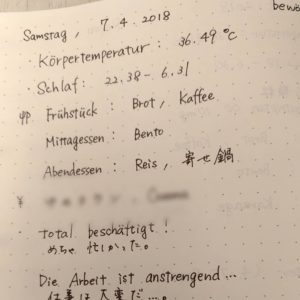 bewe
Samstag, 7.4.2018
· Körpertemperatur: 36.49 °C
· Schlaf: 22.38 - 6.31
Frühstück: Brot, Kaffee
Mittagessen: Bento
Abendessen: Reis, 寄せ鍋
¥
· Total beschäftigt!
めちゃ 忙しかった。
Die Arbeit ist anstrengend...
仕事は大変だ...。